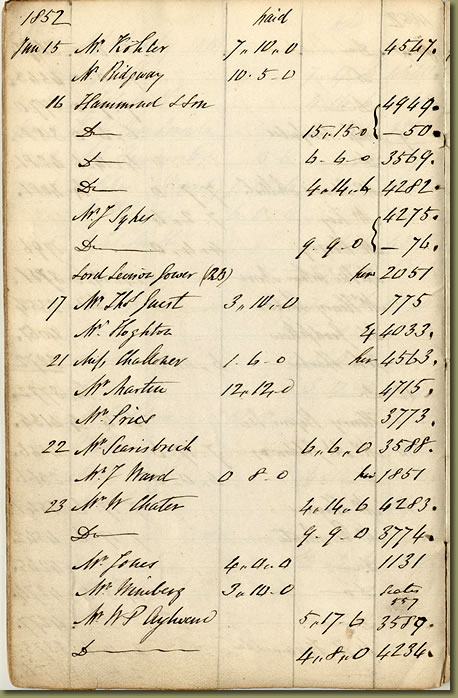 1852 paid
Jan 15 Mr Köhler 7,, 10,, 0 4547.
Mr Ridgway 10 . 5 - 0
16 Hammond & Son 4949.
Do 15,, 15 - 0 { - 50.
Do 6 - 6 - 0 3569.
Do 4,, 14,, 6 4282.
Mr J Sykes 4275.
Do 9 - 9 - 0 { - 76.
Lord Leveson Gower (23) her 2051
17 Mr Thos Guest 3,, 10,, 0 775
Mr Hoghton 4033.
21 Miss Challoner 1 . 6 - 0 her 4563.
Mr Martin 12,, 12,, 0 4715.
Mr Price 3773.
22 Mr Scarisbrick 6,, 6,, 0 3588.
Mr J Ward 0 8 . 0 her 1851
23 Mr W Chater 4,, 14,, 6 4283.
Do 9 - 9 - 0 3774.
Mr Jones 4,, 0,, 0 1131
Mr 3,, 10 - 0 557
Mr W P Aylward 5 . 17 - 6 3589.
Do 4,, 8,, 0 4234.